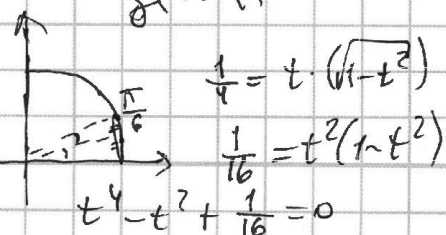 1/4 = t · (√(1-t²))
π/6
1/16 = t²(1-t²)
t⁴ - t² + 1/16 = 0